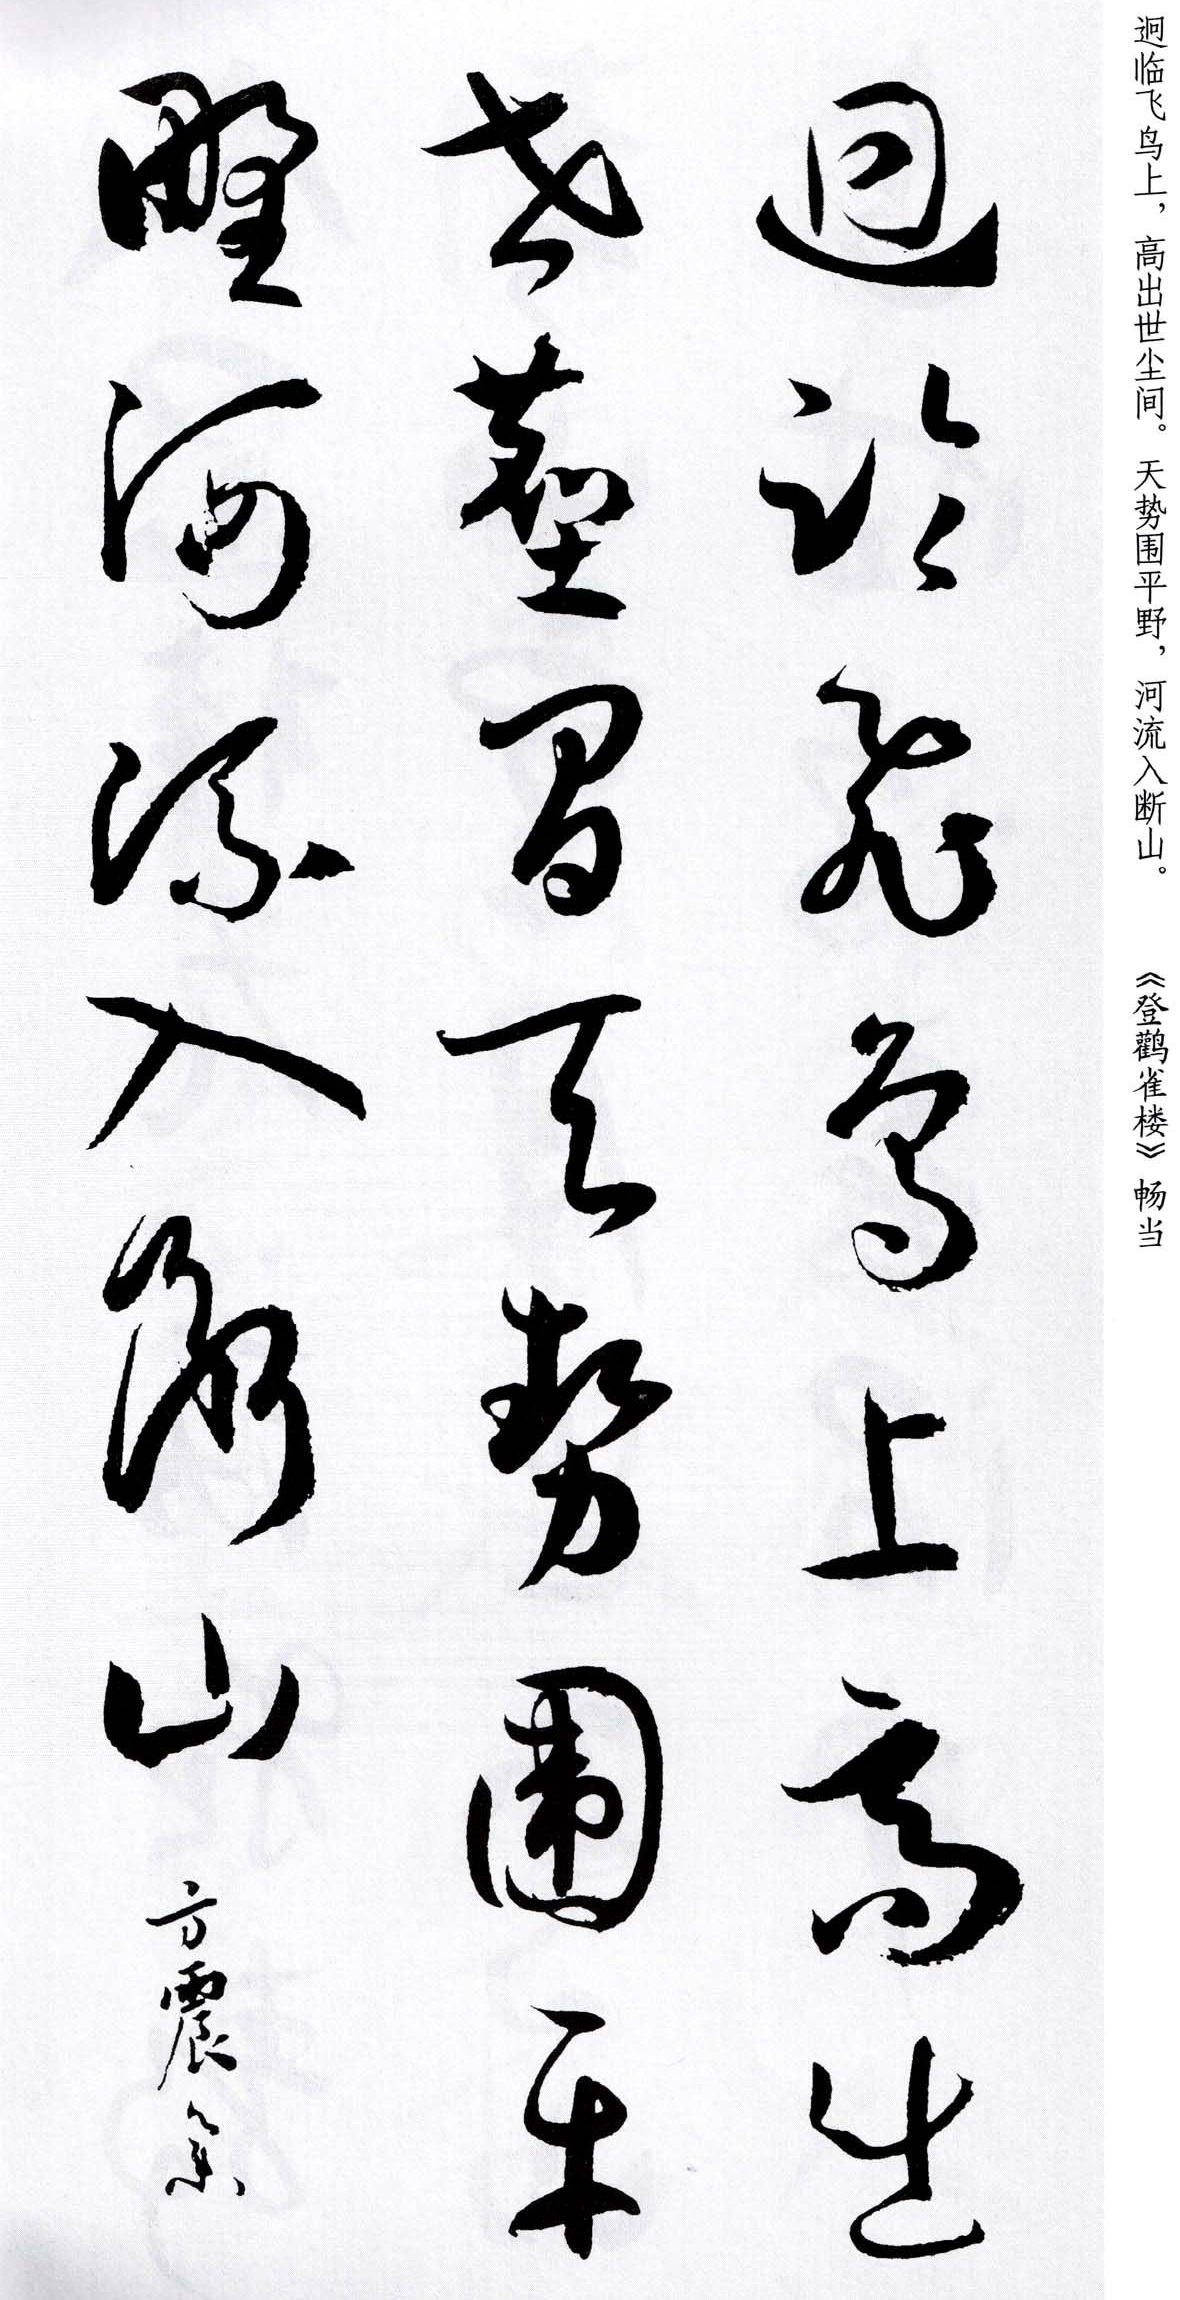 迥临飞鸟上，高出世尘间。天势围平野，河流入断山。 《登鹳雀楼》 畅当
迥临飛鳥上高出
世塵間天勢圍平
野河流入断山
方震